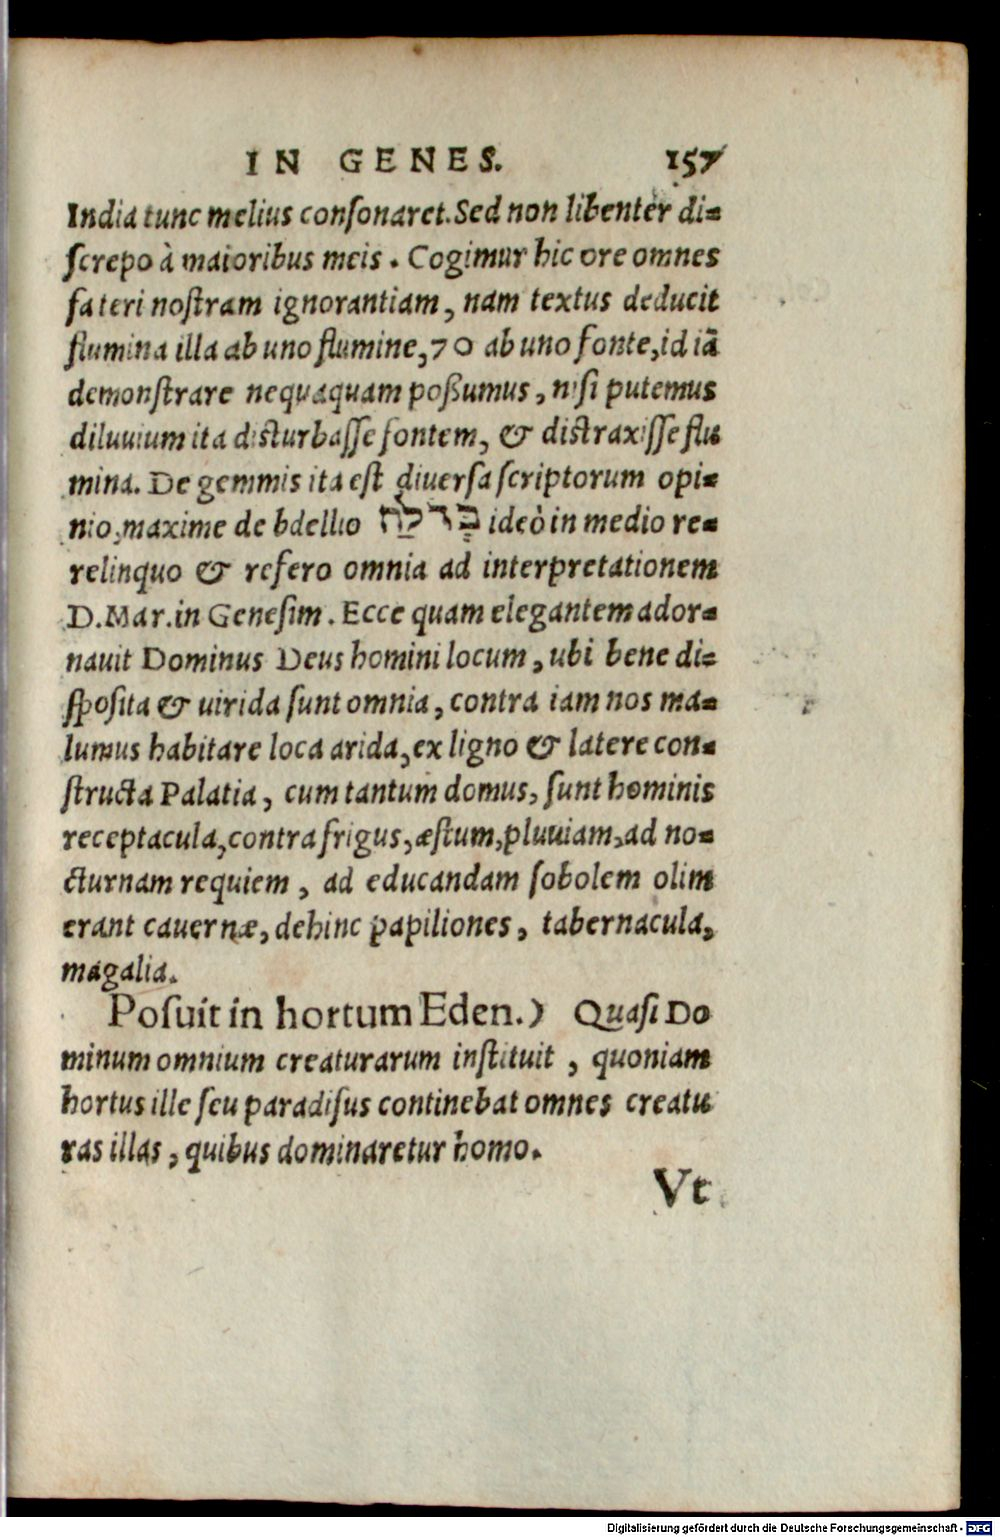 IN GENES. 157
India tunc melius conſonaret. Sed non libenter di-
ſcrepo à maioribus meis. Cogimur hic ore omnes
fateri noſtram ignorantiam, nam textus deducit
flumina illa ab uno flumine, 70 ab uno fonte, id iā
demonſtrare nequaquam poßumus, niſi putemus
diluuium ita diſturbaſſe fontem, & diſtraxiſſe flu
mina. De gemmis ita eſt diuerſa ſcriptorum opi-
nio, maxime de bdellio בְּדֹלַח ideò in medio re-
relinquo & refero omnia ad interpretationem
D. Mar. in Geneſim. Ecce quam elegantem ador-
nauit Dominus Deus homini locum, ubi bene di-
ſpoſita & uirida ſunt omnia, contra iam nos ma-
lumus habitare loca arida, ex ligno & latere con-
ſtructa Palatia, cum tantum domus, ſunt hominis
receptacula, contra frigus, æſtum, pluuiam, ad no-
cturnam requiem, ad educandam ſobolem olim
erant cauernæ, dehinc papiliones, tabernacula,
magalia.
Poſuit in hortum Eden.) Quaſi Do
minum omnium creaturarum inſtituit, quoniam
hortus ille ſeu paradiſus continebat omnes creatu
ras illas, quibus dominaretur homo.
Vt
Digitalisierung gefördert durch die Deutsche Forschungsgemeinschaft - DFG